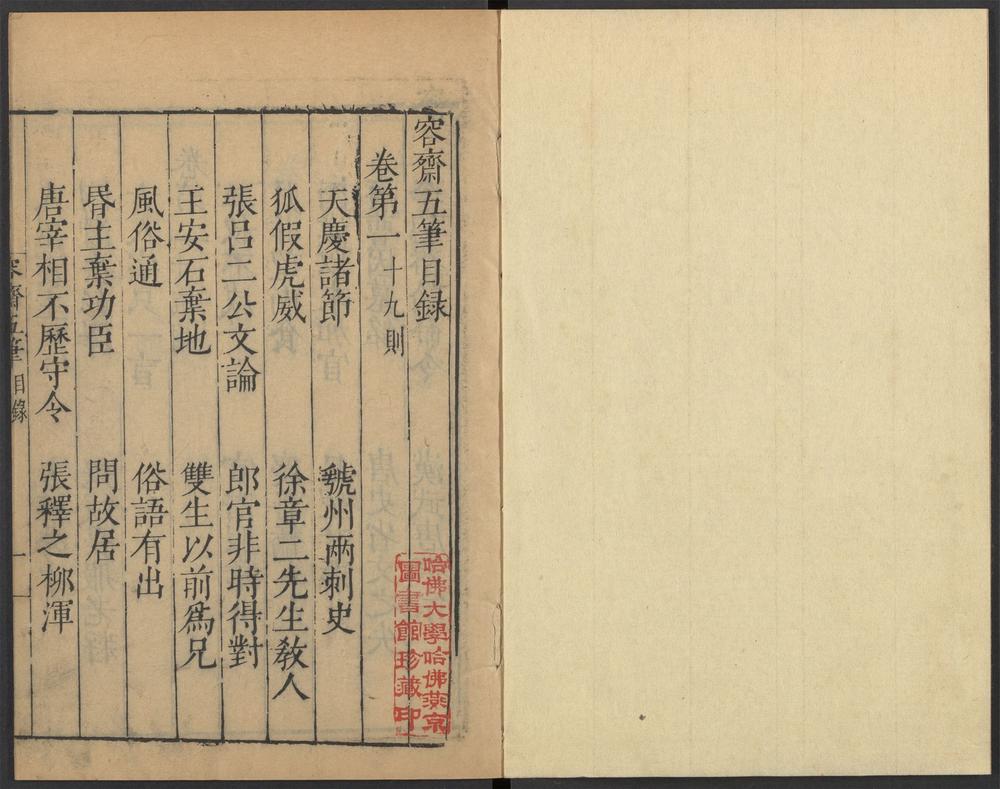 容齋五筆目録
卷第一 十九則
天慶諸節 虢州兩刺史
狐假虎威 徐章二先生敎人
張呂二公文論 郎官非時得對
王安石棄地 雙生以前爲兄
風俗通 俗語有出
昬主棄功臣 問故居
唐宰相不歷守令 張釋之柳渾
容齋五筆 目錄 一
哈佛大學哈佛燕京
圖書館珍藏印